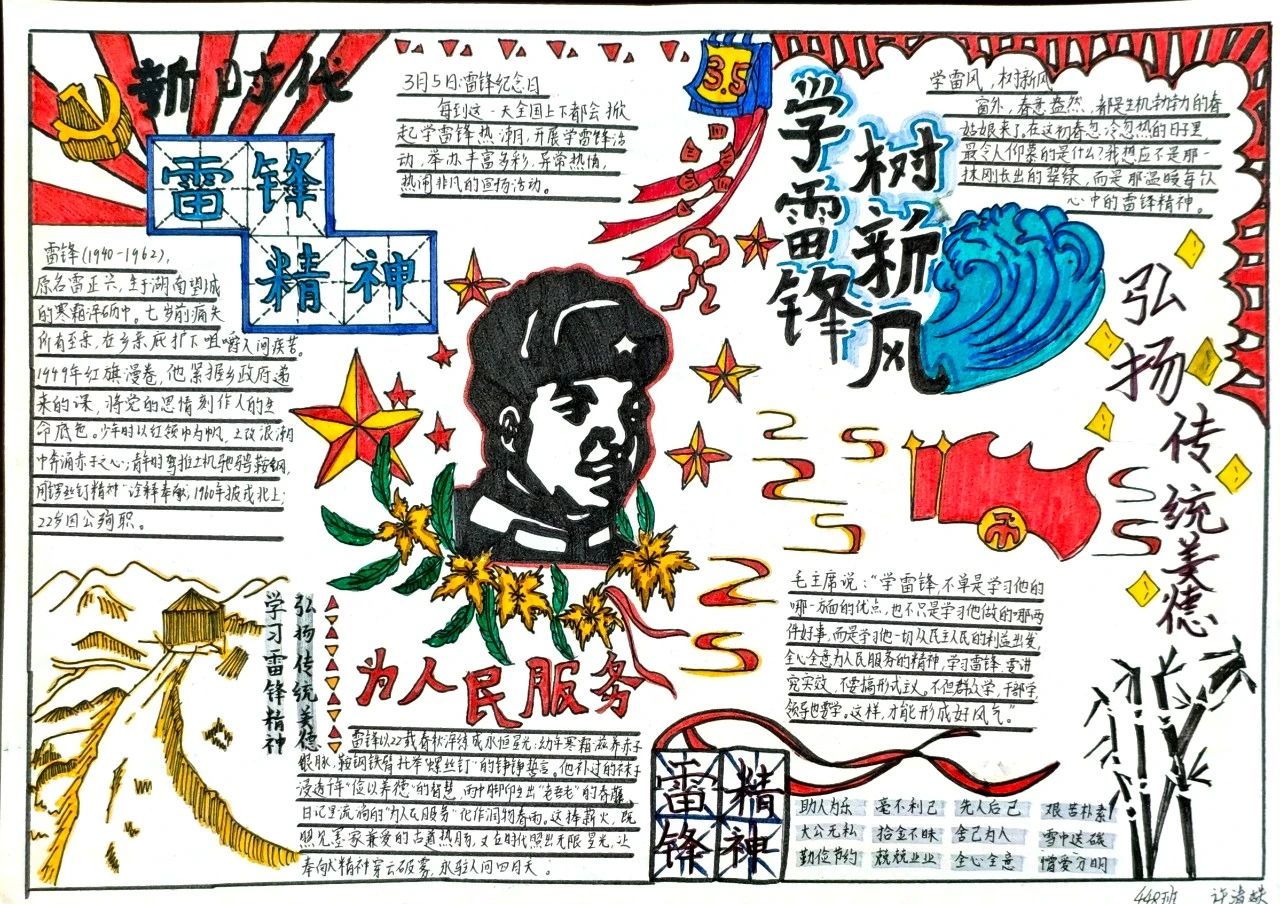 新时代
雷锋
精神
3月5日:雷锋纪念日
每到这一天全国上下都会掀
起学雷锋热潮,开展学雷锋活
动,举办丰富多彩,异常热情,
热闹非凡的宣扬活动。
3.5
学雷锋
树新风
学雷风,树新风
窗外,春意盎然,都是生机勃勃的春
姑娘来了,在这初春忽冷忽热的日子里,
最令人仰慕的是什么?我想应不是那一
抹刚长出的翠绿,而是那温暖每个人
心中的雷锋精神。
弘扬传统美德
雷锋(1940-1962),
原名雷正兴,生于湖南望城
的寒霜淬砺中。七岁前痛失
所有至亲,在乡亲庇护下咀嚼人间疾苦。
1949年红旗漫卷,他紧握乡政府递
来的课,将党的恩情刻作人的生
命底色。少年时以红领巾为帆,土改浪潮
中奔涌赤子之心;青年时驾推土机驰骋鞍钢,
用"螺丝钉精神"诠释奉献;1960年报戎北上;
22岁因公殉职。
学习雷锋精神
弘扬传统美德
为人民服务
毛主席说:"学雷锋,不单是学习他的
哪一方面的优点,也不只是学习他做的哪两
件好事,而是学习他一切从民主人民的利益出发,
全心全意为人民服务的精神,学习雷锋要讲
究实效,不要搞形式主义。不但群众学,干部学,
领导也要学,这样,才能形成好风气。"
雷锋以22载春秋淬炼成永恒星光:幼年寒霜滋养赤子
根脉,鞍钢铁臂托举"螺丝钉"的铮铮誓言。他补过的袜子
浸透千年"俭以养德"的智慧,雨中脚印
日记里流淌的"为人民服务"化作润物春雨。这捧薪火,既
照见墨家兼爱的古道热肠,又在时代照出无限星光,让
奉献精神穿云破雾,永驻人间四月天。
雷锋
精神
助人为乐 毫不利己 先人后己 艰苦朴素
大公无私 拾金不昧 舍己为人 雪中送碳
勤俭节约 兢兢业业 全心全意 憎爱分明
448班